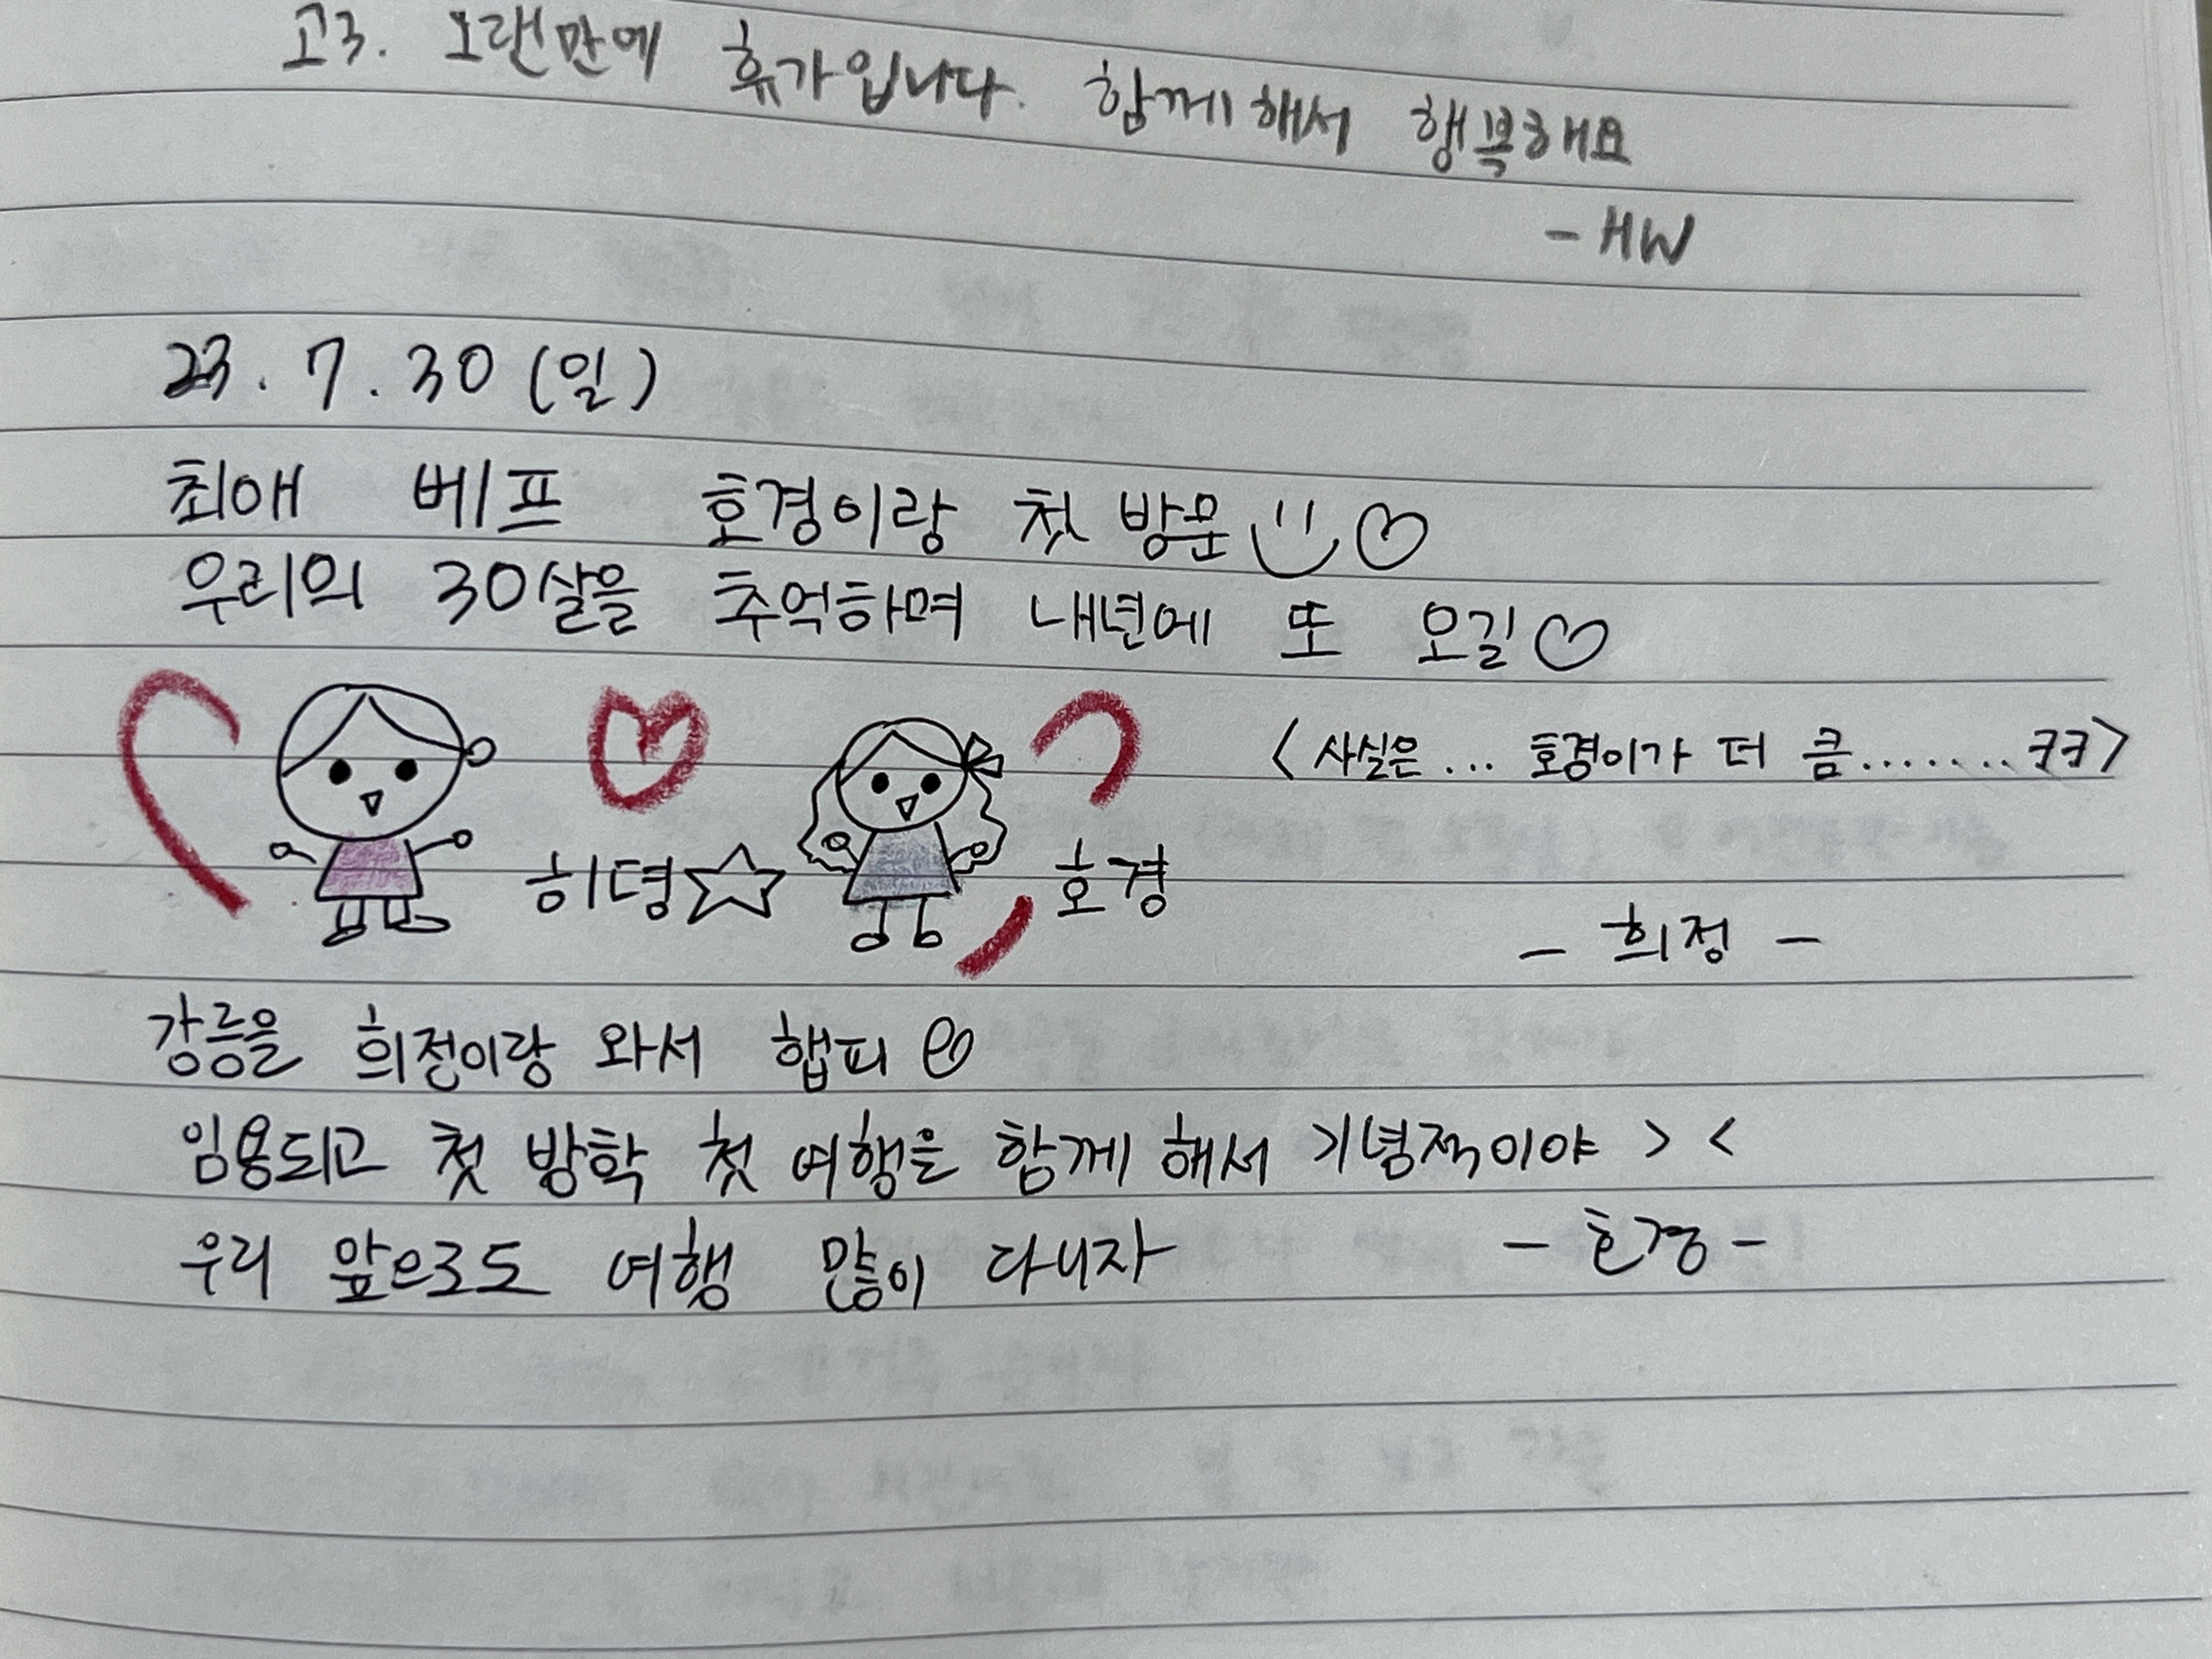 고3. 오랜만에 휴가입니다. 함께해서 행복해요
- HW
23. 7. 30 (일)
최애 베프 호경이랑 첫 방문
우리의 30살을 추억하며 내년에 또 오길♡
<사실은... 호경이가 더 큼........ㅋㅋ>
히뎡☆ 호경
- 희정 -
강릉을 희전이랑 와서 햅피
임용되고 첫 방학 첫 여행을 함께 해서 기념적이야 > <
우리 앞으로도 여행 많이 다니자
- 호경 -